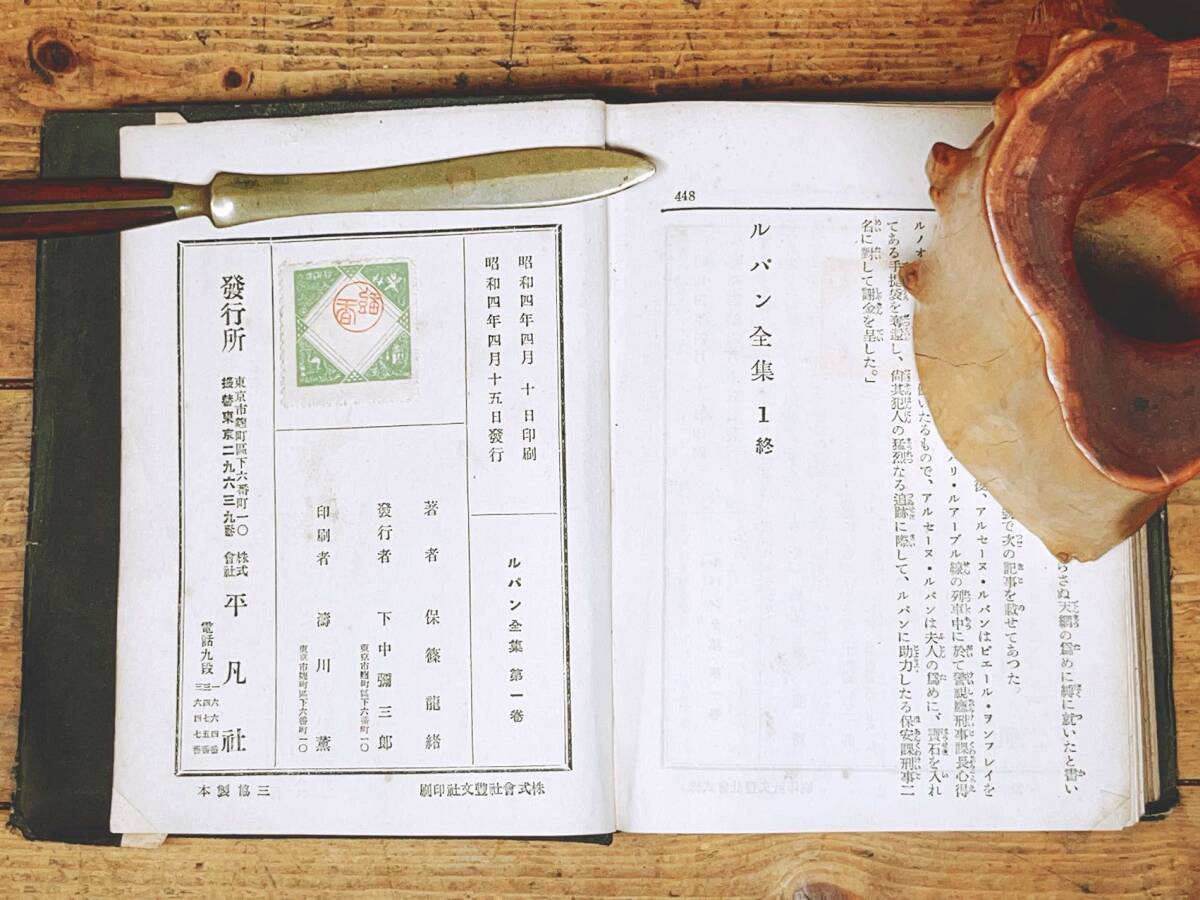 448
らさぬ天網の爲めに縛に就いたと書い
で次の記事を載せてあつた。
後、アルセーヌ・ルパンはピエール・ヲンフレイを
リ・ルアーブル線の列車中に於て警視廳刑事課長心得
いたるもので、アルセーヌ・ルパンは夫人の爲めに、寶石を入れ
ルノオ
てある手提袋を奪還し、尙其犯人の猛烈なる追跡に際して、ルパンに助力したる保安課刑事二
名に對して謝金を呈した。」
ルパン全集 1 終
昭和四年四月 十 日印刷
昭和四年四月十五日發行
ルパン全集 第一卷
著者 保篠龍緖
發行者 下中彌三郎
東京市麴町區下六番町一〇
印刷者 濤川薰
東京市麴町區下六番町一〇
發行所
東京市麴町區下六番町一〇
振替東京二九六三九番
株式會社 平凡社
電話九段
株式會社豐文社印刷
三協製本